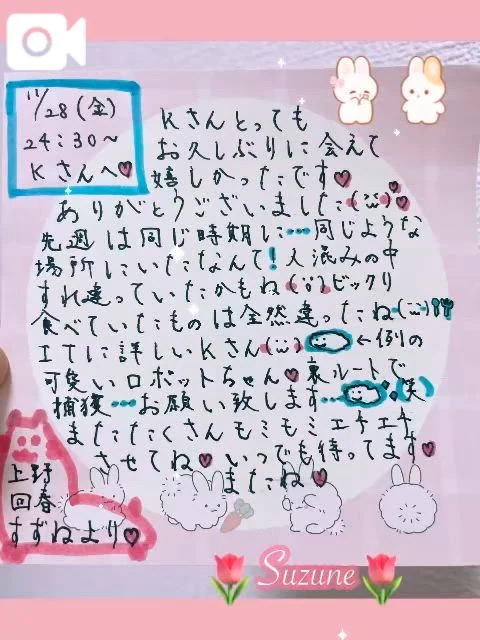 11/28(金)
24:30~
Kさんへ♥
Kさんとっても
お久しぶりに会えて
嬉しかったです♥
ありがとうございました
先週は同じ時期に…同じような
場所にいたなんて!人混みの中
すれ違っていたかもね ビックリ
食べていたものは全然違ったね
ITに詳しいKさん ←例の
可愛いロボットちゃん♥裏ルートで
捕獲…お願い致します… (笑)
またたくさんモミモミエチエチ
させてね♥いつでも待ってます♥
またね♥
上野
回春
すずねより♥
Suzune